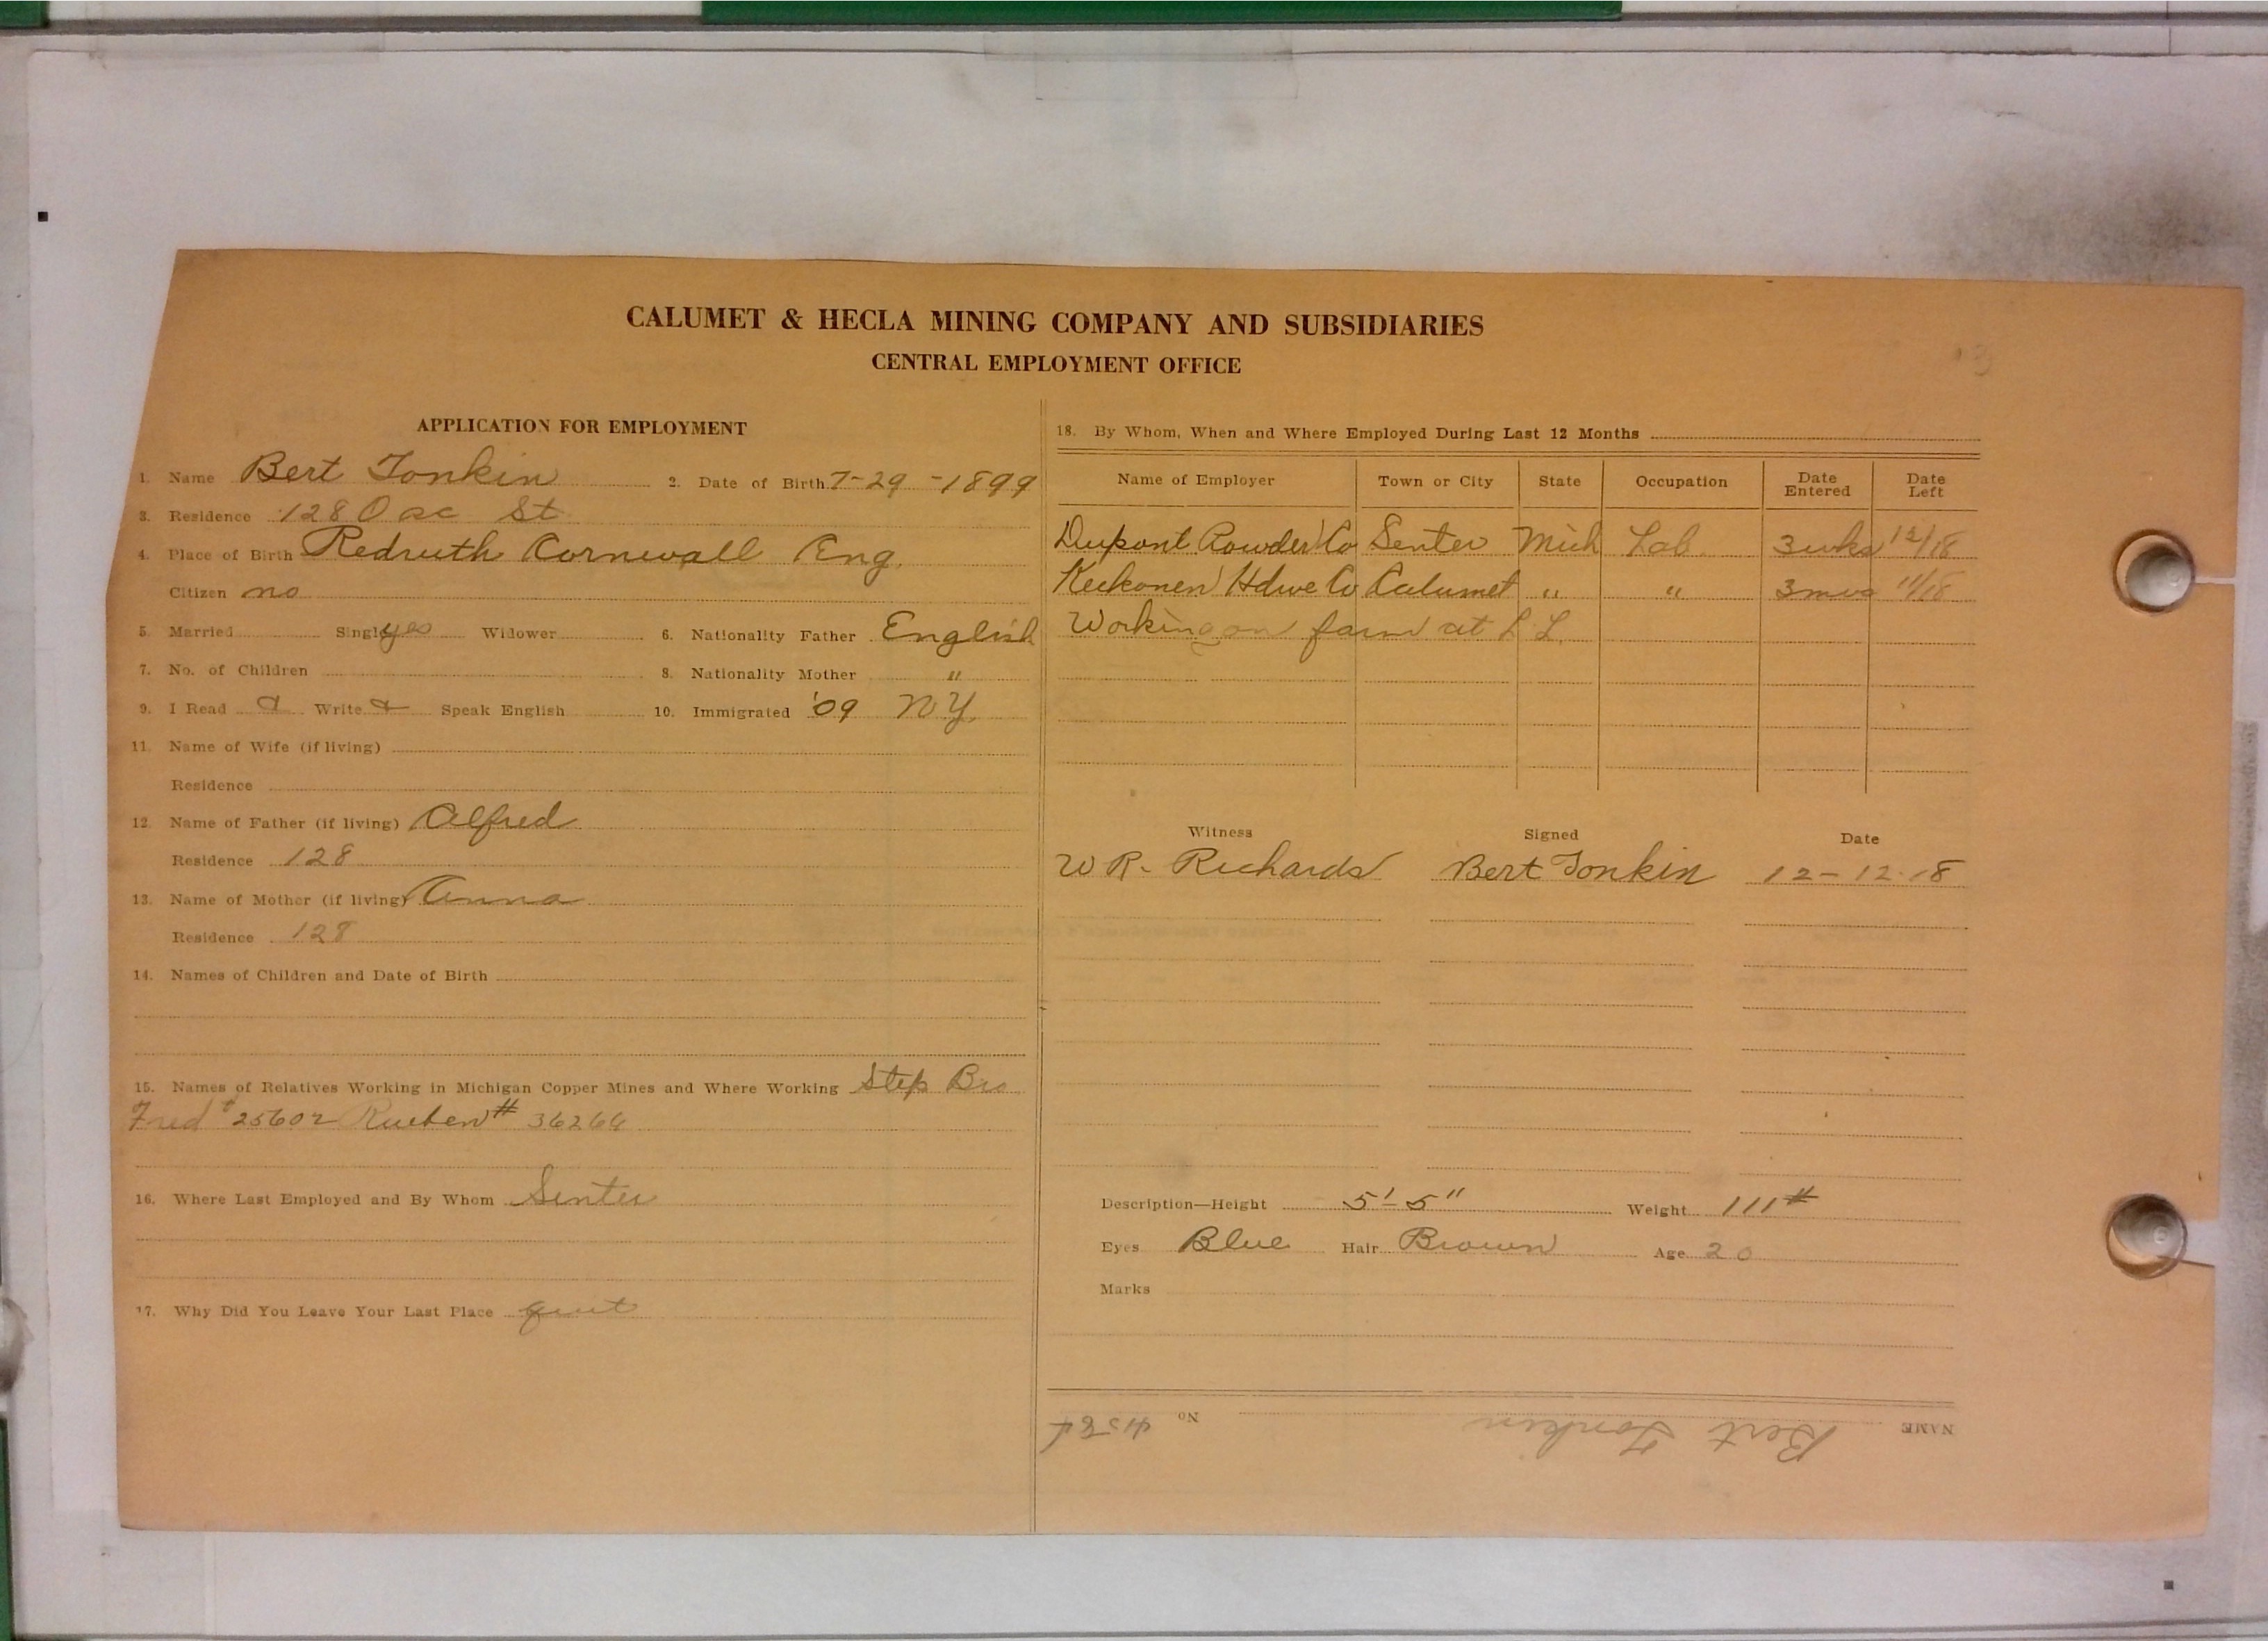 CALUMET & HECLA MINING COMPANY AND SUBSIDIARIES
CENTRAL EMPLOYMENT OFFICE
APPLICATION FOR EMPLOYMENT
1. Name Bert Tonkin 2. Date of Birth 7-29-1899
3. Residence 128 Osc St
4. Place of Birth Redruth Cornwall Eng.
Citizen no
5. Married Single yes Widower 6. Nationality Father English
7. No. of Children 8. Nationality Mother "
9. I Read & Write & Speak English 10. Immigrated '09 NY.
11. Name of Wife (if living)
Residence
12. Name of Father (if living) Alfred
Residence 128
13. Name of Mother (if living) Anna
Residence 128
14. Names of Children and Date of Birth
15. Names of Relatives Working in Michigan Copper Mines and Where Working Step Bro
Fred #25602 Rueben # 36266
16. Where Last Employed and By Whom Senter
17. Why Did You Leave Your Last Place quit
18. By Whom, When and Where Employed During Last 12 Months
Name of Employer Town or City State Occupation Date Entered Date Left
Dupont Powder Co Senter Mich Lab. 3 wks 12/18
Keckonen Hdwe Co Calumet " " 3 mos 11/18
Working on farm at L L.
Witness Signed Date
W R. Richards Bert Tonkin 12-12-18
Description—Height 5'-5" Weight 111#
Eyes Blue Hair Brown Age 20
Marks
NAME Bert Tonkin No